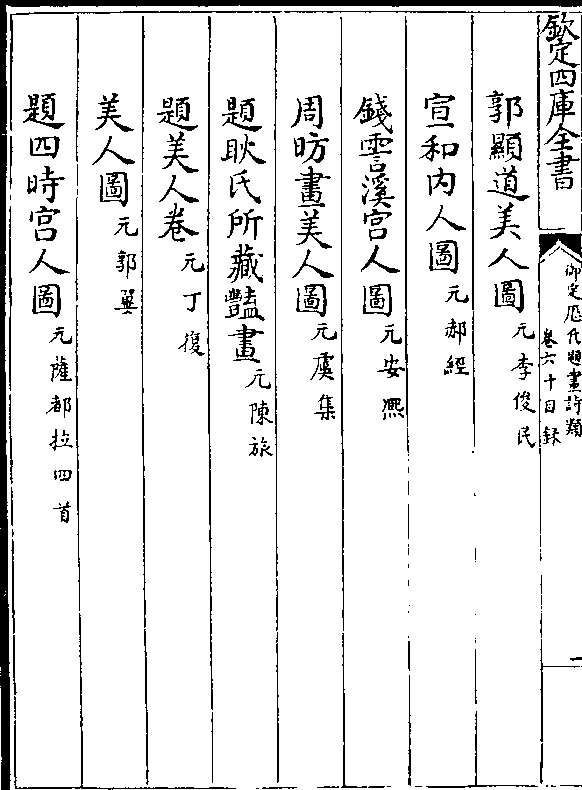 欽定四庫全書
御定歷代題畫詩類
卷六十目録
一
郭顯道美人圖元李俊民
宣和内人圖元郝經
錢雲溪宫人圖元安熙
周昉畫美人圖元虞集
題耿氏所藏豔畫元陳旅
題美人卷元丁復
美人圖元郭翼
題四時宫人圖元薩都拉四首